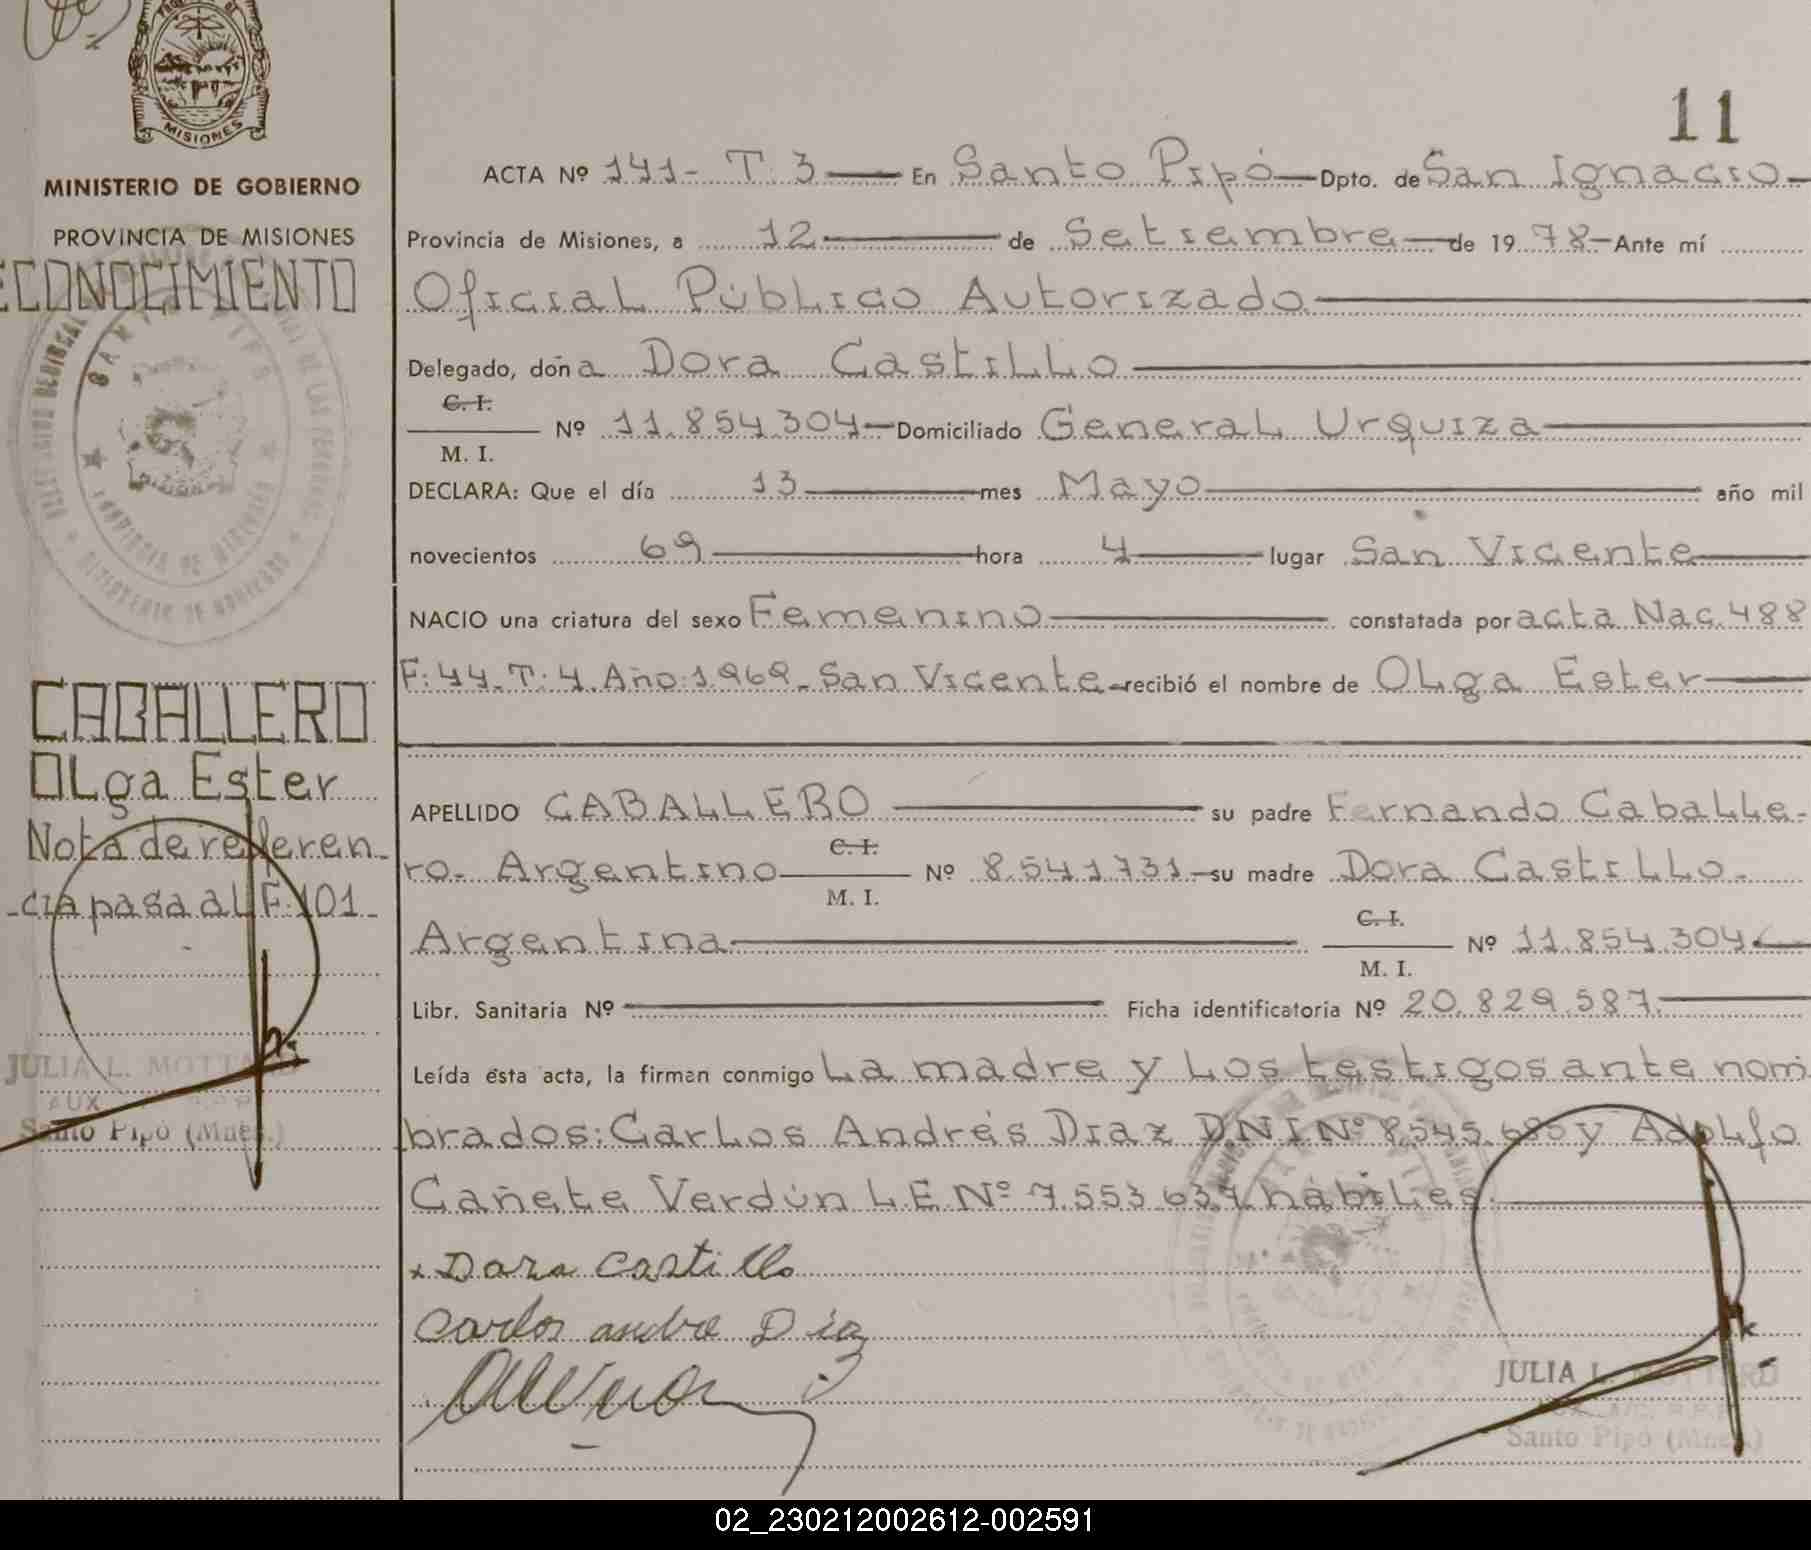 11
MISIONES
MINISTERIO DE GOBIERNO
PROVINCIA DE MISIONES
ECONOCIMIENTO
CABALLERO
Olga Ester
Nota de referen-
cia pasa al F: 101
JULIA L. MOTTA
AUX.
Santo Pipó (Mnes.)
ACTA Nº 141- T. 3 En Santo Pipó Dpto. de San Ignacio
Provincia de Misiones, a 12 de Setiembre de 1978 Ante mí
Oficial Público Autorizado
Delegado, doña Dora Castillo
C. I.
M. I. Nº 11.854.304 Domiciliado General Urquiza
DECLARA: Que el día 13 mes Mayo año mil
novecientos 69 hora 4 lugar San Vicente
NACIO una criatura del sexo Femenino constatada por acta Nac. 488
F: 44. T: 4. Año: 1969. San Vicente recibió el nombre de Olga Ester
APELLIDO CABALLERO su padre Fernando Caballe-
ro. Argentino C. I. M. I. Nº 8.541.731 su madre Dora Castillo.
Argentina C. I. M. I. Nº 11.854.304
Libr. Sanitaria Nº Ficha identificatoria Nº 20.829.587.
Leída ésta acta, la firman conmigo La madre y los testigos ante nom
brados: Carlos Andrés Diaz DNI Nº 8.545.680 y Adolfo
Cañete Verdún L.E. Nº 7.553.637 hábiles.
x Dora Castillo
Carlos andre Diaz
JULIA L.
Santo Pipó (Mnes.)
02_230212002612-002591